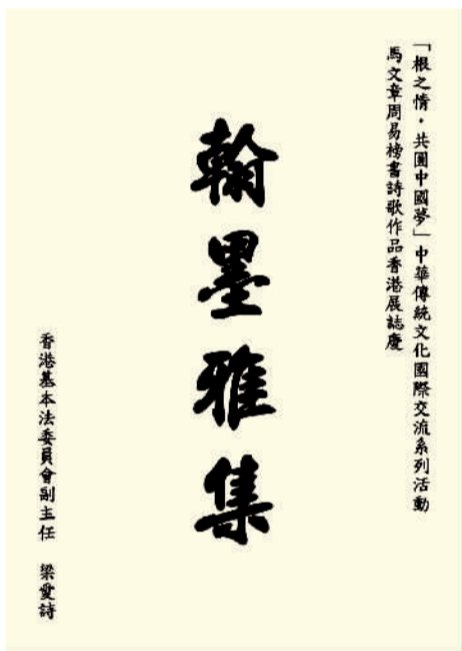 「根之情·共圓中國夢」中華傳統文化國際交流系列活動
馬文章周易榜書詩歌作品香港展誌慶
翰墨雅集
香港基本法委員會副主任 梁愛詩